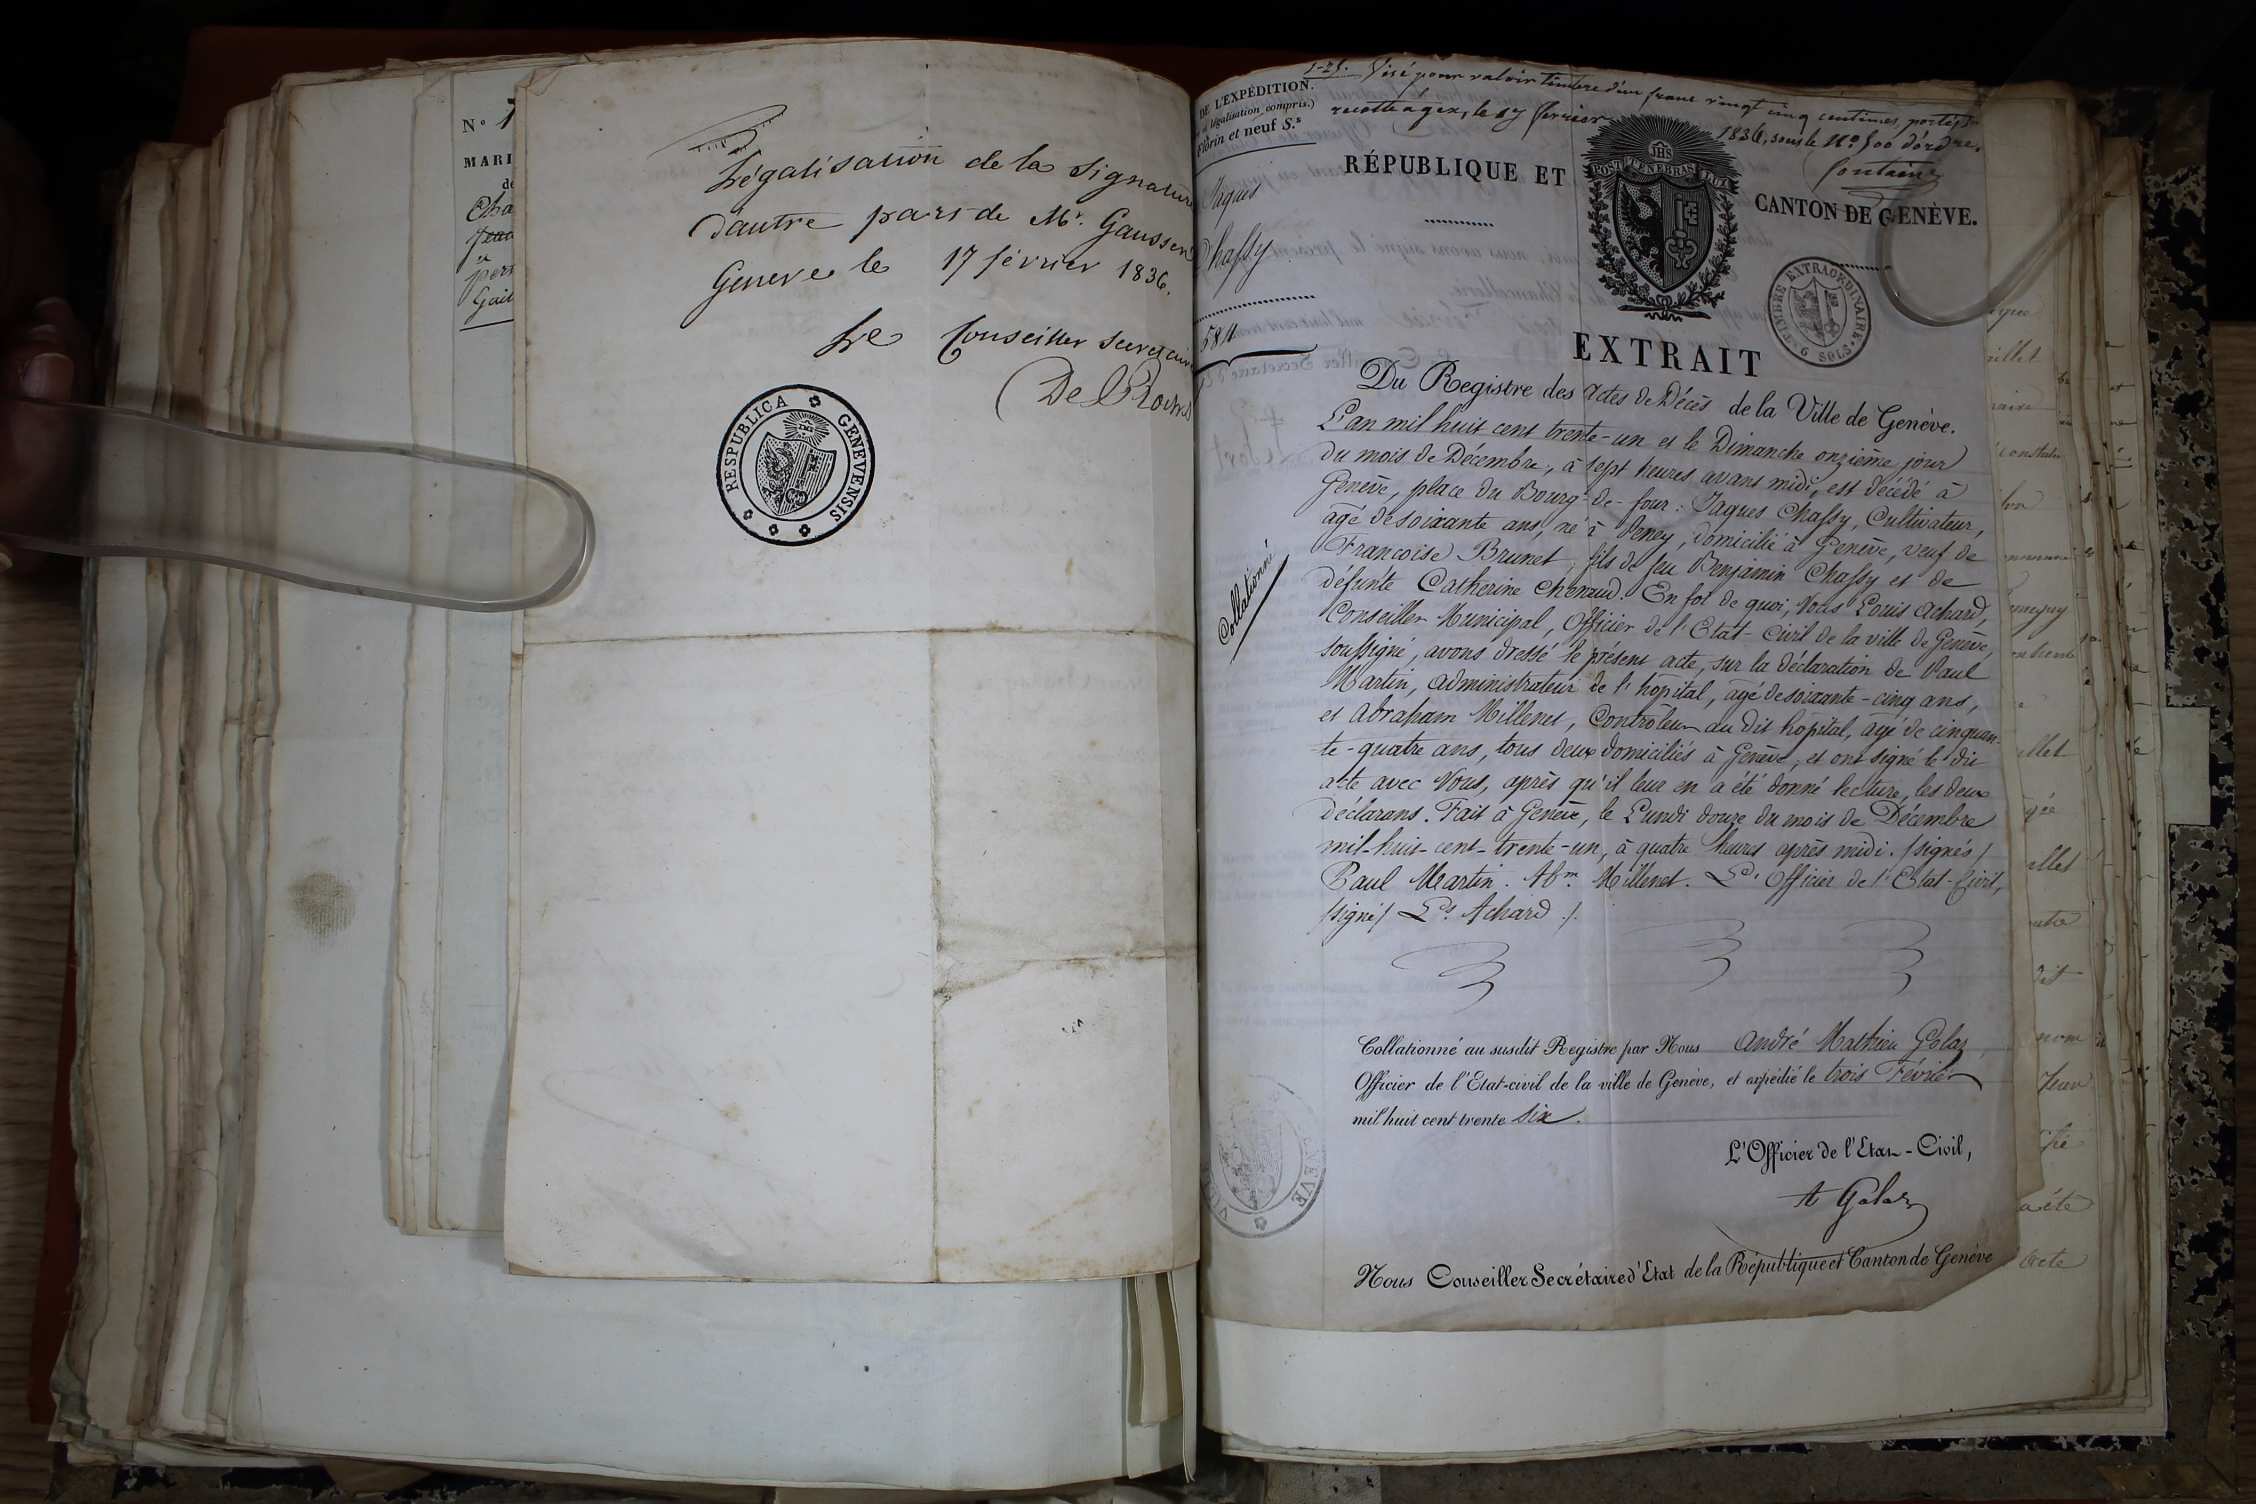 N°
MARI
de
Cha
Jean
&
pern
Gail
Légalisation de la Signature
d'autre part de Mr. Gaussen
Geneve le 17 février 1836.
Le Conseiller Secretaire
De Roches
RESPUBLICA GENEVENSIS
DE L'EXPÉDITION.
légalisation compris.)
Florin et neuf S.s
Jaques
Chassy
584
Collationné
1-25. Visé pour valoir timbre d'un franc vingt cinq centimes, portés en
recette à gex, le 17 février 1836, sous le N° 500 d'ordre.
Fontaine
RÉPUBLIQUE ET CANTON DE GENÈVE.
JHS
POST TENEBRAS LUX
TIMBRE EXTRAORDINAIRE
9 SOLS
EXTRAIT
Du Registre des actes de Décès de la Ville de Genève.
L'an mil huit cent trente-un et le Dimanche onzième jour
du mois de Décembre, à sept heures avant midi, est décédé à
Genève, place du Bourg-de-four: Jaques Chassy, Cultivateur,
agé de soixante ans, né à Peney, domicilié à Genève, veuf de
Francoise Brunet, fils de feu Benjamin Chassy et de
défunte Catherine Chenaud. En foi de quoi, Nous Louis Achard,
Conseiller Municipal, Officier de l'Etat-Civil de la ville de Genève,
soussigné, avons dressé le présent acte, sur la déclaration de Paul
Martin, administrateur de l'hôpital, agé de soixante-cinq ans,
et Abraham Millenet, Contrôleur au dit hôpital, agé de cinquan-
te-quatre ans, tous deux domiciliés à Genève, et ont signé le dit
acte avec Nous, après qu'il leur en a été donné lecture, les deux
déclarans. Fait à Genève, le Lundi douze du mois de Décembre
mil-huit-cent-trente-un, à quatre heures après midi. /signés/
Paul Martin. Abm. Millenet. L'Officier de l'Etat-Civil,
/signé/ Ls Achard /.
Collationné au susdit Registre par Nous André Mathieu Golaz,
Officier de l'Etat-civil de la ville de Genève, et expédié le trois Février
mil huit cent trente six.
L'Officier de l'Etat-Civil,
A Golaz
Nous Conseiller Secrétaire d'Etat de la République et Canton de Genève